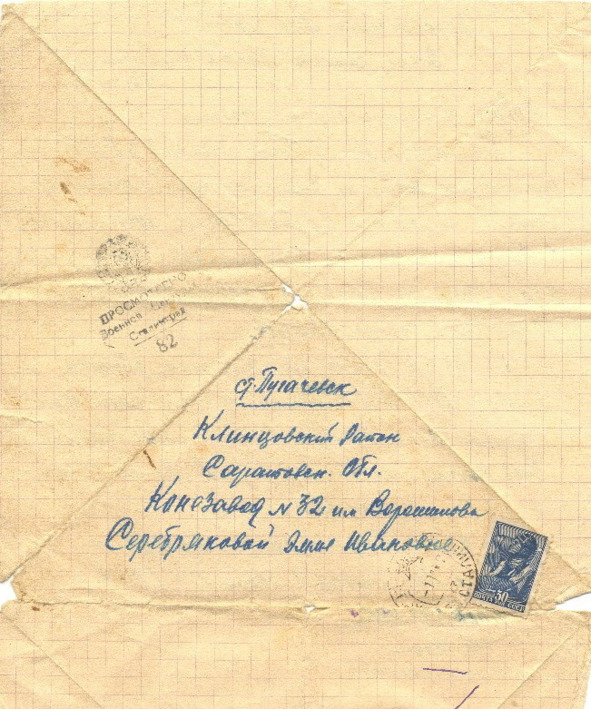 ПРОСМОТРЕНО
Военной Цензурой
Сталинград
82
ст. Пугачевск
Клинцовский Район
Саратовск. Обл.
Конезавод N 32 им Ворошилова
Серебряковой Эмме Ивановне
30
ПОЧТА СССР